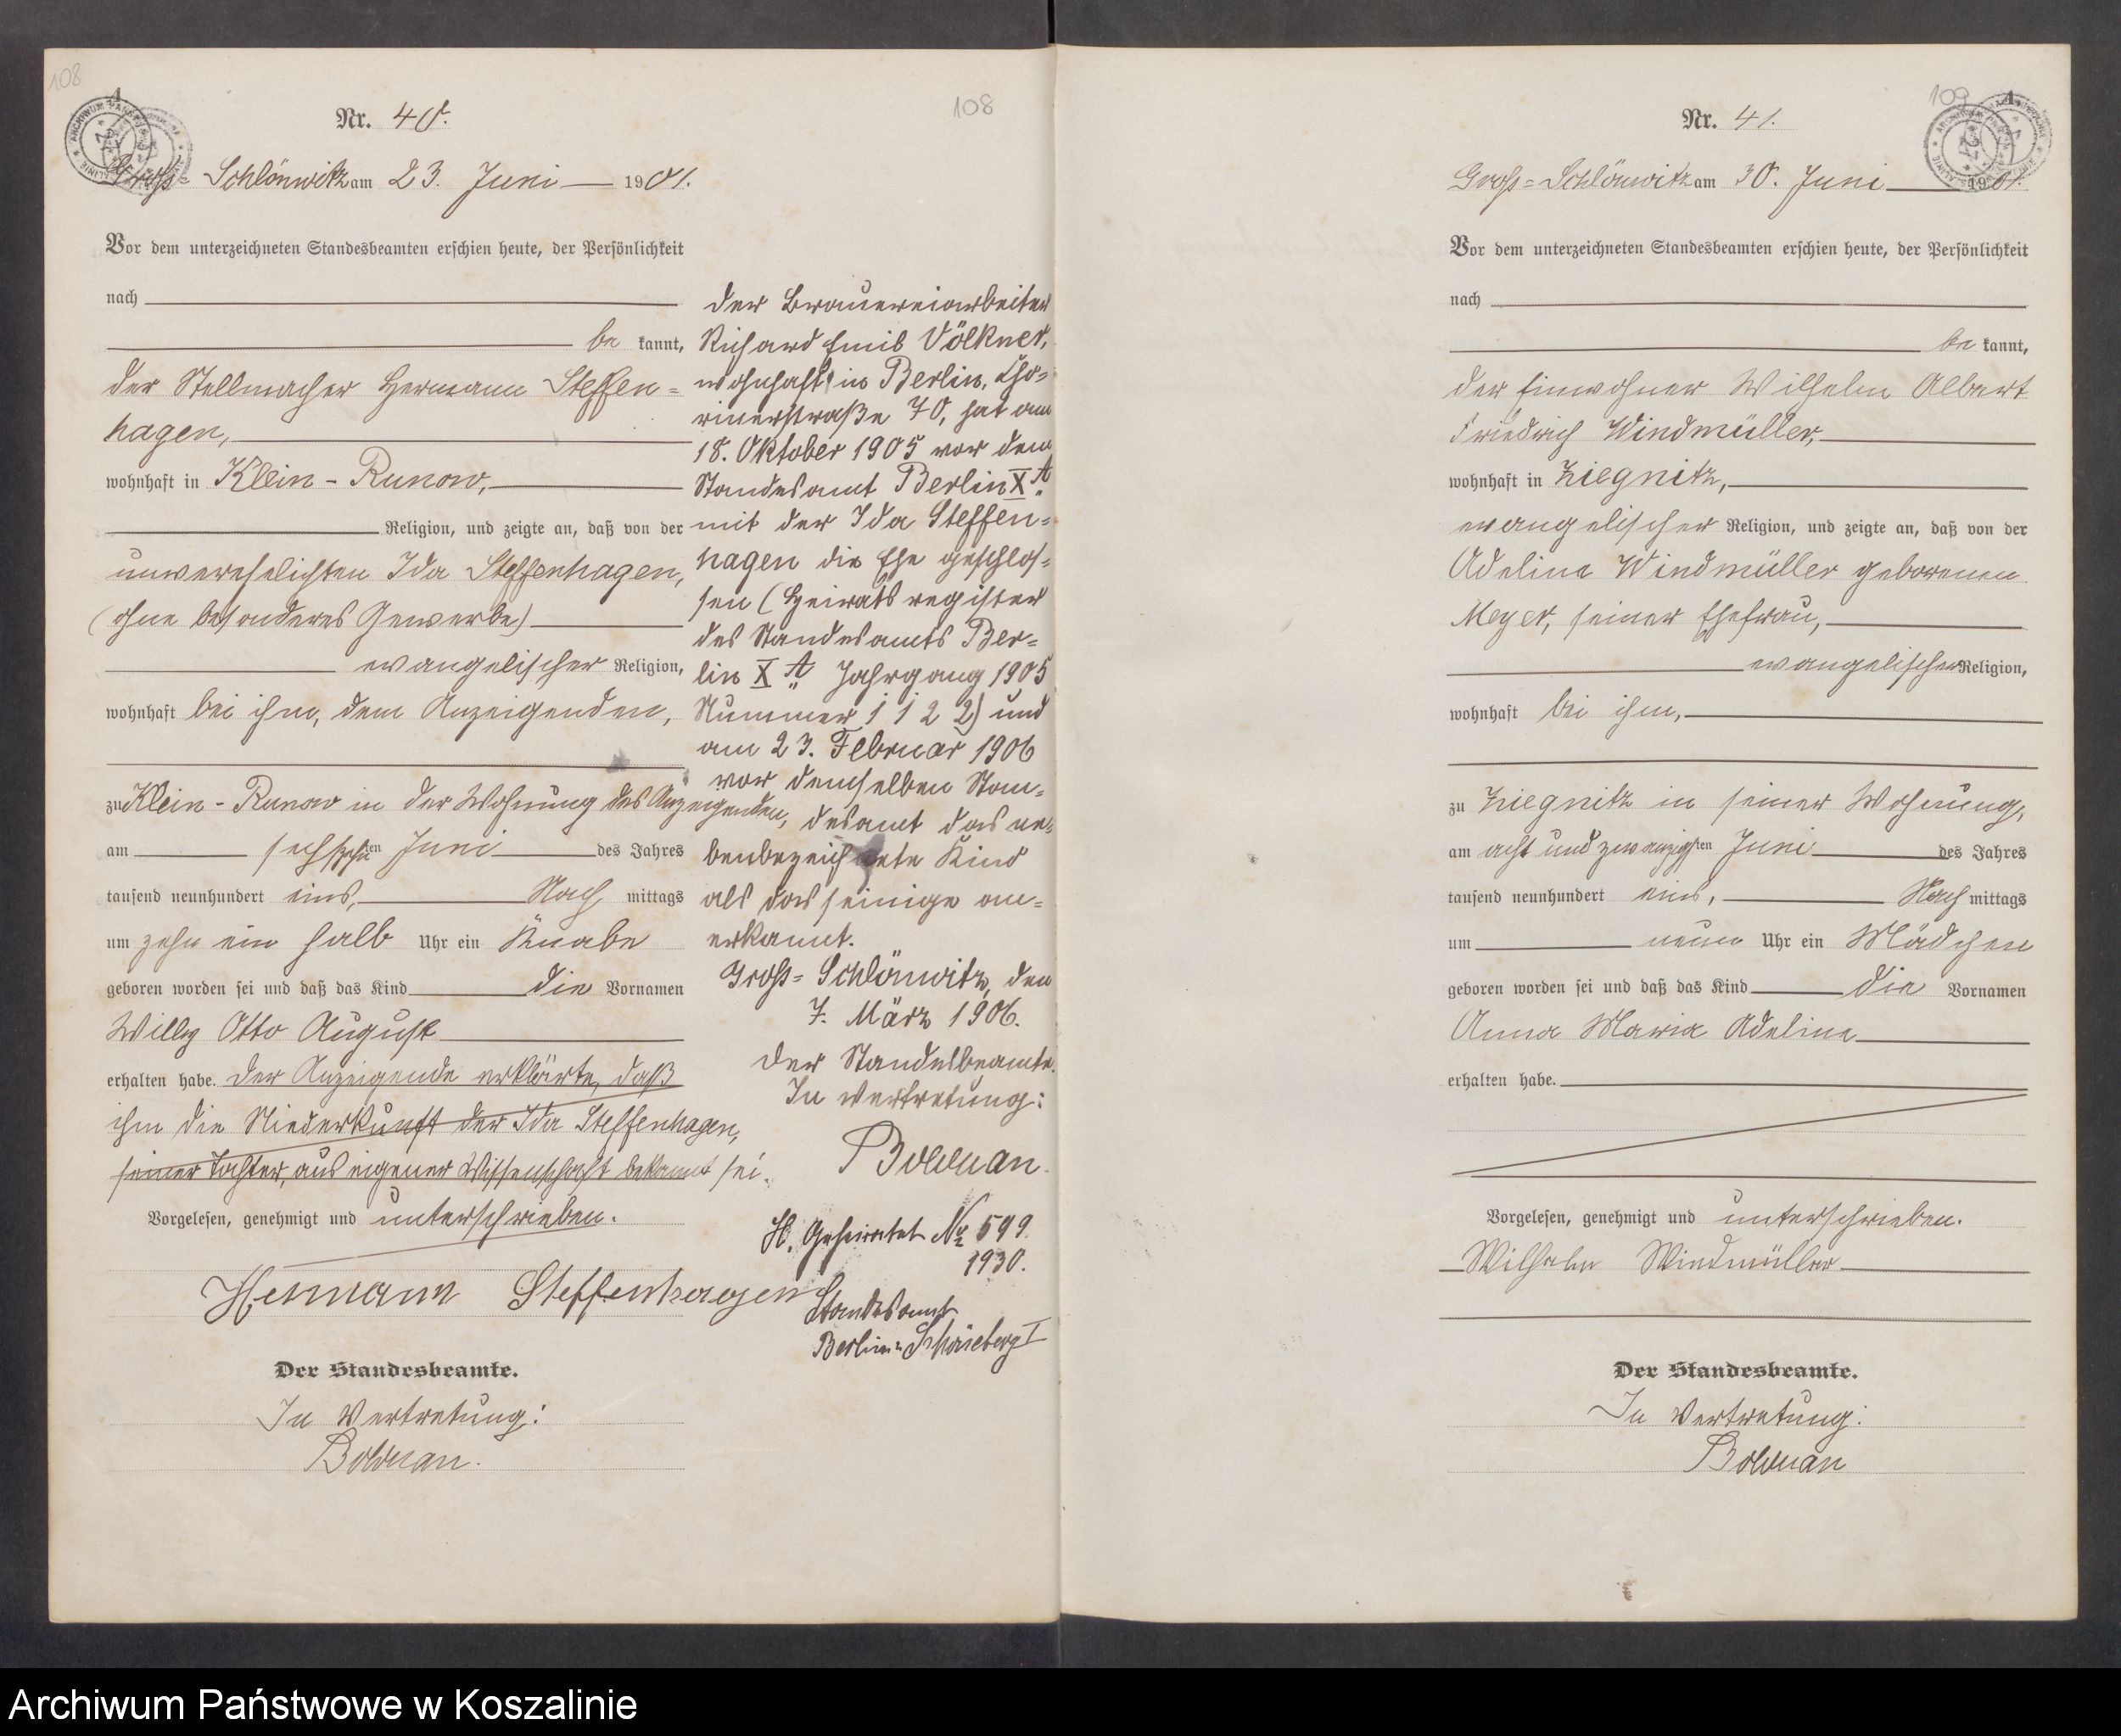 108
108
Nr. 40.
Groß= Schlönwitz am 23. Juni 1901.
Vor dem unterzeichneten Standesbeamten erschien heute, der Persönlichkeit
nach
be kannt,
der Stellmacher Hermann Steffen=
hagen,
wohnhaft in Klein - Runow,
Religion, und zeigte an, daß von der
unverehelichten Ida Steffenhagen,
(ohne besonderes Gewerbe)
evangelischer Religion,
wohnhaft bei ihm, dem Anzeigenden,
zu Klein - Runow in der Wohnung des Anzeigenden,
am sechszehnten Juni des Jahres
tausend neunhundert eins, Nach mittags
um zehn ein halb Uhr ein Knabe
geboren worden sei und daß das Kind die Vornamen
Willy Otto August
erhalten habe. Der Anzeigende erklärte, daß
ihm die Niederkunft der Ida Steffenhagen,
seiner Tochter, aus eigener Wissenschaft bekannt sei.
Vorgelesen, genehmigt und unterschrieben.
Hermann Steffenhagen
Der Standesbeamte.
In Vertretung:
Bolduan.
Der Brauereiarbeiter
Richard Emil Völkner,
wohnhaft in Berlin, Cho=
rinerstraße 70, hat am
18. Oktober 1905 vor dem
Standesamt Berlin X A
mit der Ida Steffen=
hagen die Ehe geschlos=
sen (Heiratsregister
des Standesamts Ber=
lin X A Jahrgang 1905
Nummer 1122) und
am 23. Februar 1906
vor demselben Stan=
desamt das ne=
benbezeichnete Kind
als das seinige an=
erkannt.
Groß= Schlönwitz, den
7. März 1906.
Der Standesbeamte.
In Vertretung:
Bolduan.
H. Geheiratet No 599
1930.
Standesamt
Berlin-Schöneberg I
109
Nr. 41.
Groß= Schlönwitz am 30. Juni 1901.
Vor dem unterzeichneten Standesbeamten erschien heute, der Persönlichkeit
nach
be kannt,
der Einwohner Wilhelm Albert
Friedrich Windmüller,
wohnhaft in Ziegnitz,
evangelischer Religion, und zeigte an, daß von der
Adeline Windmüller geborenen
Meyer, seiner Ehefrau,
evangelischer Religion,
wohnhaft bei ihm,
zu Ziegnitz in seiner Wohnung,
am acht und zwanzigsten Juni des Jahres
tausend neunhundert eins, Nach mittags
um neun Uhr ein Mädchen
geboren worden sei und daß das Kind die Vornamen
Anna Maria Adeline
erhalten habe.
Vorgelesen, genehmigt und unterschrieben.
Wilhelm Windmüller
Der Standesbeamte.
In Vertretung:
Bolduan
Archiwum Państwowe w Koszalinie